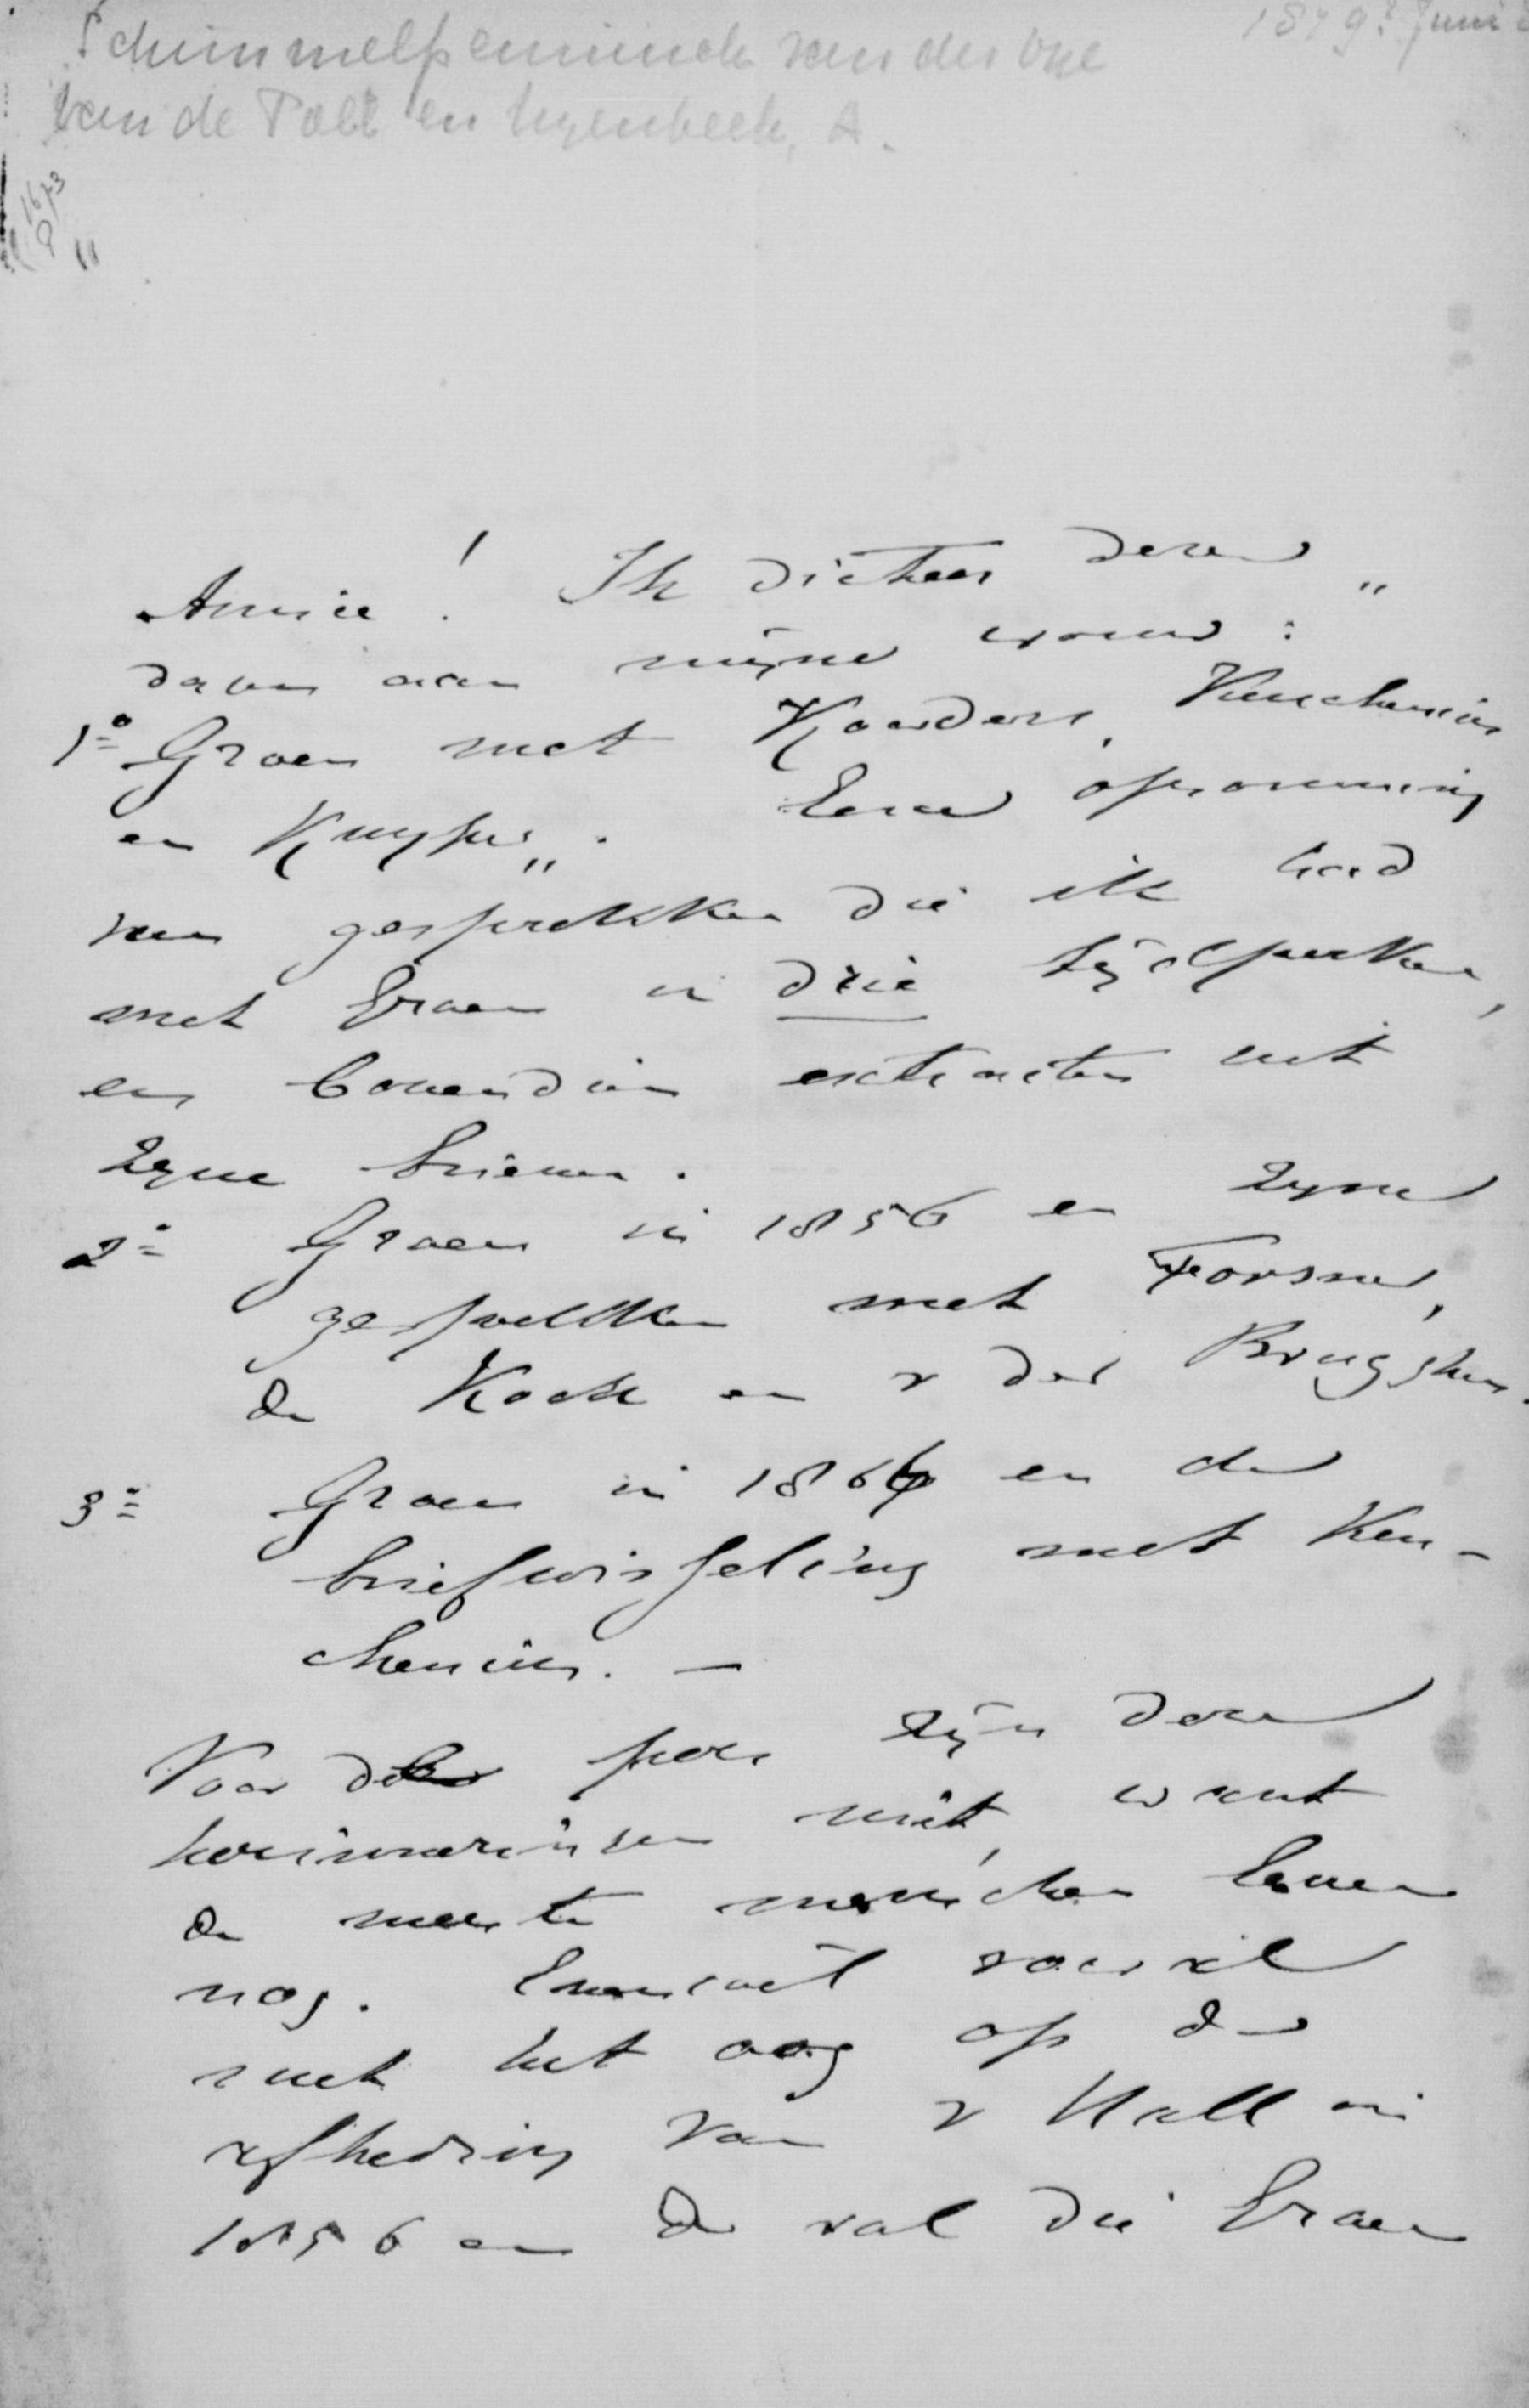 Schimmelpenninck van der Oye
van de Poll en Nyenbeek, A.
1879? Juni
1673
9
11
Amice! Ik dicteer dezer
dagen aan mijne vrouw: "
1o Groen met Koorders, Keuchenius
en Kuyper". Eene opsomming
van gesprekken die ik had
met Groen in drie tijdperken,
en bovendien extracten uit
zijne brieven.
2o Groen in 1856 en zijne
gesprekken met Forsner,
de Kock en v der Brugghen.
3o Groen in 1866 en de
briefwisseling met Keu-
chenius. —
Voor de pers zijn deze
herinneringen niet, want
de meeste menschen leven
nog. Evenwel vooral
met het oog op de
afkeering van v Hall in
1856 en de val die Groen